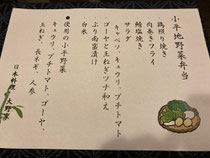 小平地野菜弁当
鶏照り焼き
肉巻きフライ
鯖塩焼き
サラダ
キャベツ、キュウリ、プチトマト
ゴーヤと玉ねぎツナ和え
ぶり南蛮漬け
白米
●使用の小平野菜
キュウリ、プチトマト、ゴーヤ、
玉ねぎ、長ネギ、人参
日本料理 大野家